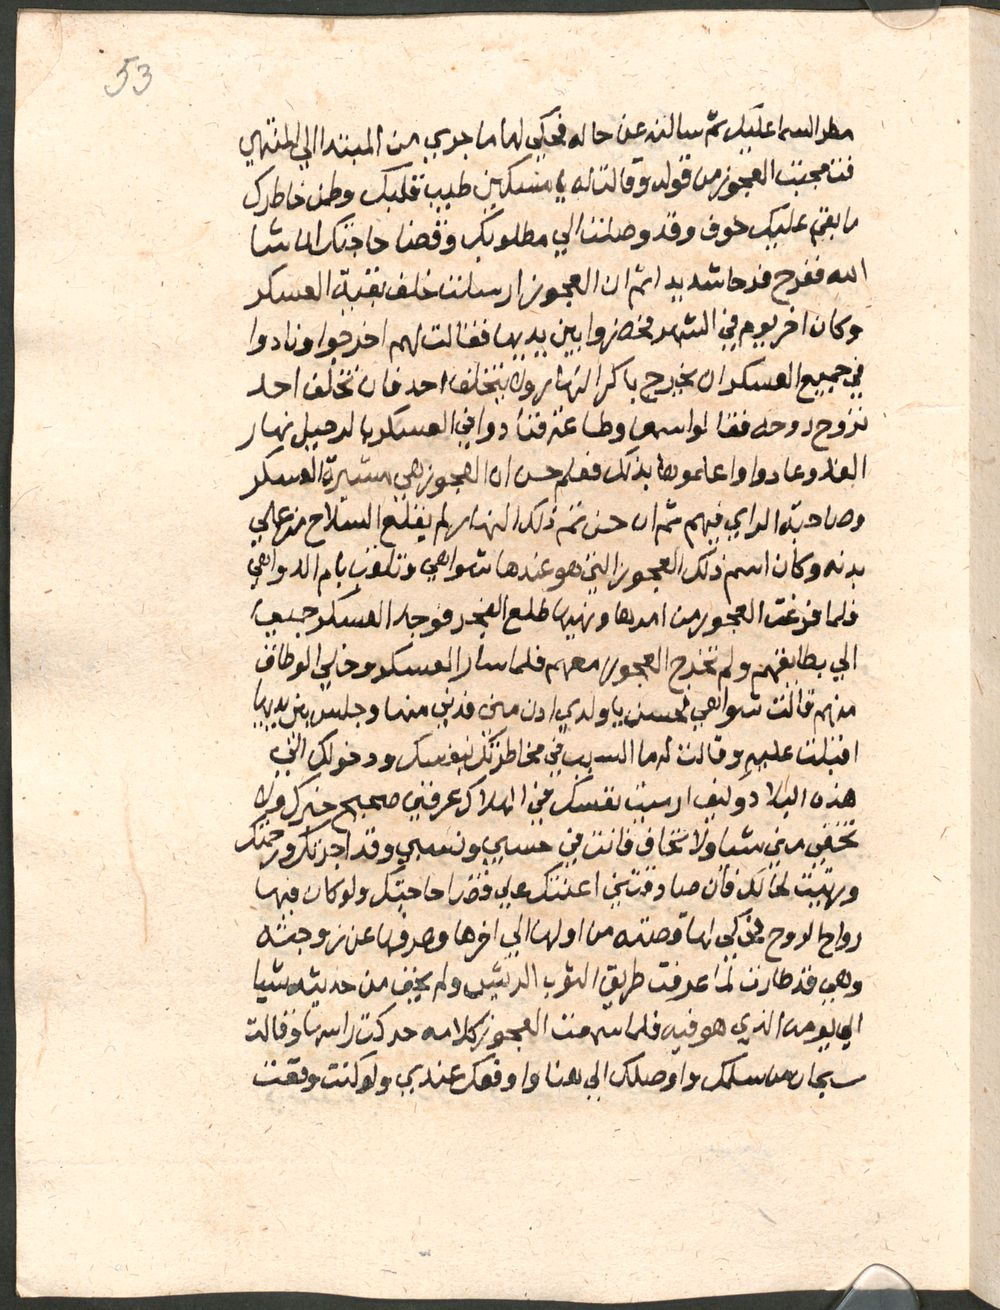 53
مطر السما عليك ثم سالته عن حاله فحكي لها ما جري من المبتدا الي المنتهي
فتعجبت العجوز من قوله وقالت له يا مسكين طيب قلبك وطن خاطرك
ما بقي عليك خوف وقد وصلت الي مطلوبك وقضا حاجتك انشا
الله ففرح فرحا شديدا ثم ان العجوز ارسلت خلف بقية العسكر
وكان اخر يوم في الشهر فحضروا بين يديها فقالت لهم اخرجوا ونادوا
في جميع العسكر ان يخرج باكر النهار ولا يتخلف احد فان تخلف احد
تروح روحه فقالوا سمعا وطاعة فنادوا في العسكر بالرحيل نهار
الغد وعادوا واعلموها بذلك فعلم حسن ان العجوز هي مشيرة العسكر
وصاحبة الراي فيهم ثم ان حسن تم ذلك النهار لم يقلع السلاح من علي
بدنه وكان اسم ذلك العجوز التي هو عندها شواهي وتلقب بام الدواهي
فلما فرغت العجوز من امرها ونهيها طلع الفجر فوجد العسكر جميعا
الي بطايقهم ولم تخرج العجوز معهم فلما سار العسكر وخلي الوطاق
منهم قالت شواهي لحسن يا ولدي ادن مني فدني منها وجلس بين يديها
اقبلت عليه وقالت له ما السبب في مخاطرتك بنفسك ودخولك الي
هذه البلاد وكيف ارميت نفسك في الهلاك عرفني صحيح خبرك ولا
تخفي مني شيا ولا تخاف فانت في حسبي ونسبي وقد اجرتك ورحمتك
ورتيت لحالك فان صادقتني اعنتك علي قضا حاجتك ولو كان فيها
رواح الروح فحكي لها قصته من اولها الي اخرها وعرفها عن زوجته
وهي قد طارت لما عرفت طريق التوب الريش ولم يخف من حديثه شيا
الي يومه الذي هو فيه فلما سمعت العجوز كلامه حركت راسها وقالت
سبحان من سلمك واوصلك الي هنا واوقعك عندي ولو كنت وقعت